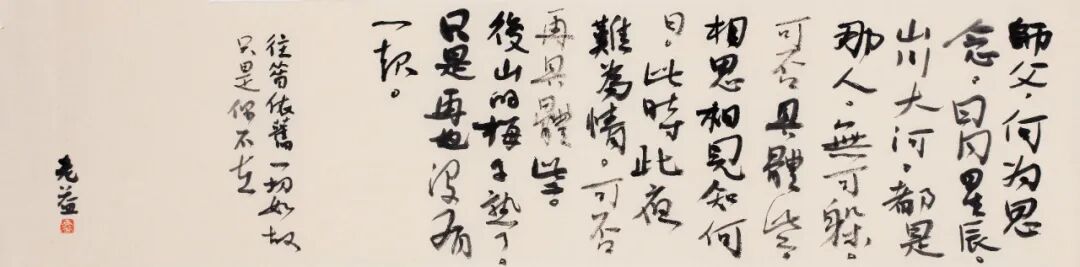 師父,何為思
念。日月星辰。
山川大河。都是
那人。無可躲。
可否具體些。
相思相見知何
日。此時此夜
難為情。可否
再具體些。
後山的梅子熟了。
只是再也沒有
一起。
往依舊一切如故
只是你不在
老益